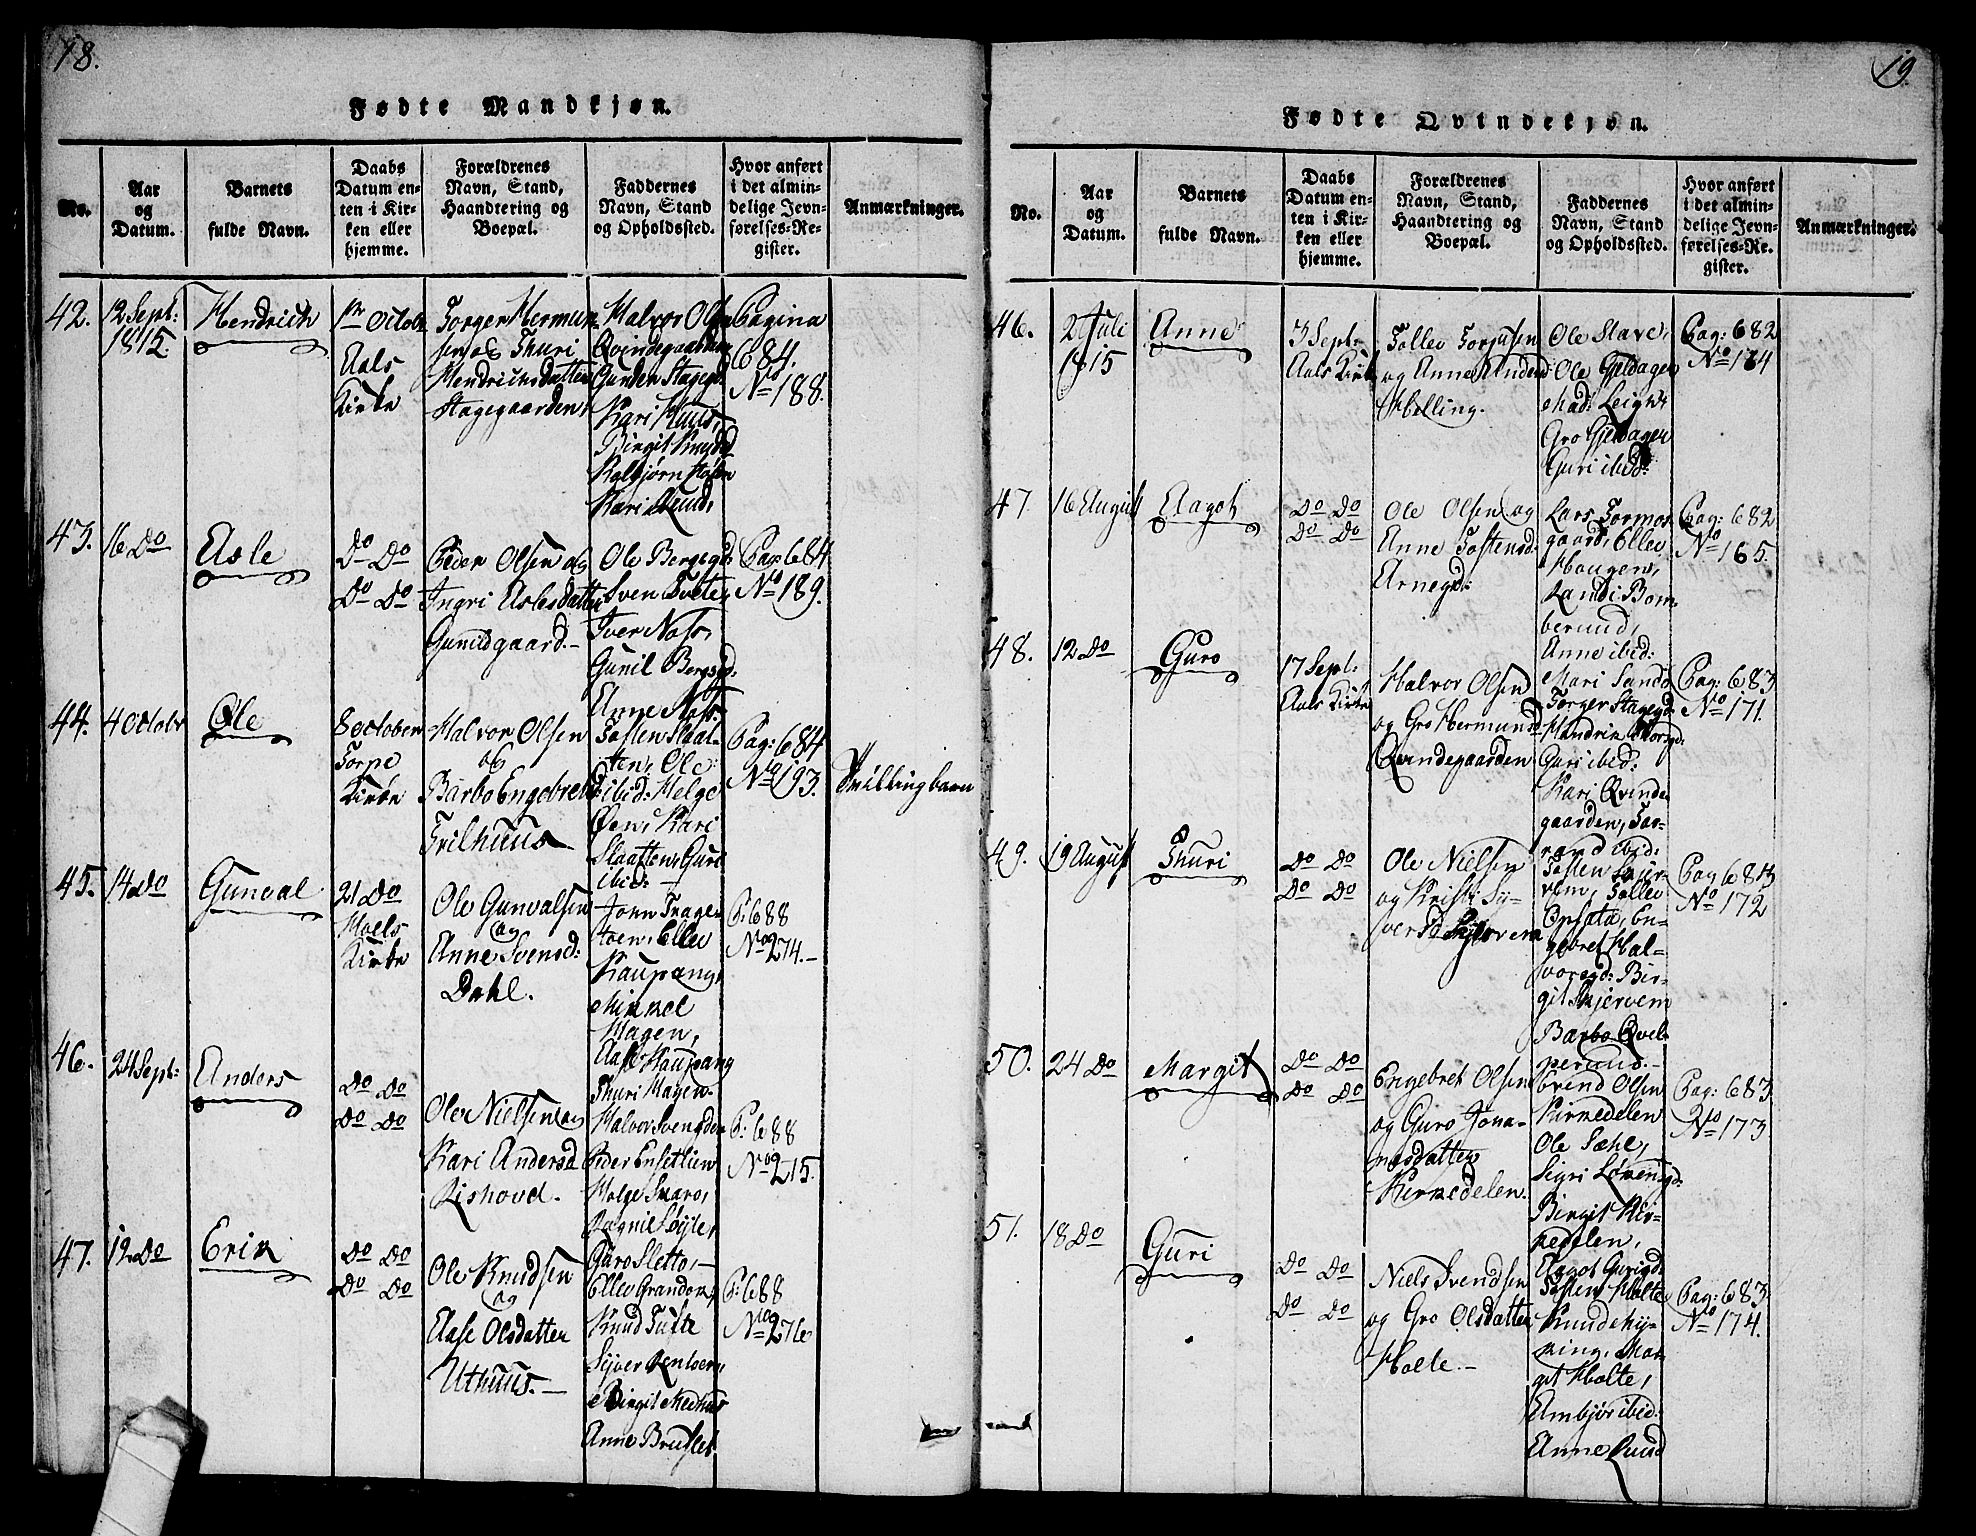 18.
Fødte Mandkjøn.
No.
Aar
og
Datum.
Barnets
fulde Navn.
Daabs
Datum en-
ten i Kir-
ken eller
hjemme.
Forældrenes
Navn, Stand,
Haandtering og
Boepæl.
Faddernes
Navn, Stand
og Opholdssted.
Hvor anført
i det almin-
delige Jevn-
førelses-Re-
gister.
Anmærkninger.
42.
12 Sept:
1815.
Hendrich
1ste Octobr
Aals
Kirke
Torger Hermun-
Thuri
Hendrichsdatter
Stagegaarden
Halvor Olsen
Qvindegaarden
Kari Huus,
Birgit Knudsd
Kari Ruud,
Pagina
684.
No 188.
43.
16 Do
Asle
Do Do
Do Do
Peder Olsen og
Ingri Aslesdatter
Gunildgaard.-
Ole Bergsgd:
Sven Tveten
Iver Noss,
Gunil Bergsgd:
Anne Noss.
Pag: 684
No 189.
44.
4 Octobr
Ole
8 October
Torpe
Kirke
Halvor Olsen
og
Barbo Engebretsd:
Trilhuus
Tosten Slaat-
ten, Ole
ibid: Helge
Øen, Kari
Slaatten, Guri
ibid: -
Pag: 684
No 193.
Tvillingbarn
45.
14 Do
Gunval
21 Do
Hoels
Kirke
Ole Gunvalsen
og
Anne Svensd:
Dahl.
John Trage-
toen, Ellev
Kaupang,
Mikkel
Hagen,
Aase Kaupang
Thuri Hagen.
P: 688
No 274.-
46.
24 Sept:
Anders
Do Do
Do Do
Ole Nielsen og
Kari Andersd
Rishovd.
Halvor Svengden
Peder Ensetlien
Helge Snaro,
Ragnil Søyle,
Guro Sletto,-
P: 688
No 215.
47.
12 Do
Erik
Do Do
Do Do
Ole Knudsen
og
Aase Olsdatter
Uthuus.-
Ellev Granden,
Knud Tufte
Birgit Medhus
Anne Bruslet
P: 688
No 276
19.
Fødte Qvindekjøn.
No.
Aar
og
Datum.
Barnets
fulde Navn.
Daabs
Datum en-
ten i Kir-
ken eller
hjemme.
Forældrenes
Navn, Stand,
Haandtering og
Boepæl.
Faddernes
Navn, Stand
og Opholdssted.
Hvor anført
i det almin-
delige Jevn-
førelses-Re-
gister.
Anmærkninger.
46.
2 Juli
1815
Anne
3 Sept:
Aals Kirke
Tollev Torjusen
og Anne Andersd:
Helling.
Ole Stave,
Ole Gjeldagen
Mad: Leigh
Gro Gjeldagen
Guri ibid:
Pag: 682
No 164
47.
16 August
Aagot
Do Do
Do Do
Ole Olsen og
Anne Tostensd:
Arnegd:
Lars Tormos
gaard, Ellev
Haugen,
Randi Bom-
berud,
Anne ibid:
Pag: 682
No 165.
48.
12 Do
Guro
17 Sept:
Aals Kirke
Halvor Olsen
og Gro Hermunsd
Qvindegaarden
Mari Sundo
Torger Stagegd:
Hendrik Thorsgd:
Guri ibid:
Kari Qvinde
gaarden, Tor-
rand ibid:
Pag: 683
No 171.
49.
19 August
Thuri
Do Do
Do Do
Ole Nielsen
og Kristi Sy-
versd Skjerven
Tosten Skjer-
vem, Tollev
Opsata, En-
gebret Hal-
vorsgd: Bir-
git Skjervem
Barbo Qvel-
perud.-
Pag 683
No 172
50.
24 Do
Margit
Do Do
Do Do
Engebret Olsen
og Guro Jona-
nasdatter
Kirkedelen
Erend Olsen
Kirkedelen
Ole Sæhl,
Sigri Løvensgd:
Birgit Kir-
kedelen,
Aagot Gurigd:
Pag: 683.
No 173
51.
18 Do
Guri
Do Do
Do Do
Niels Svendsen
og Gro Olsdatter
Holte.-
Tosten Holte,
Knud Hy-
ning, Mar-
git Holte,
Ambjør ibid:
Anne Ruud
Pag: 683
No 174.